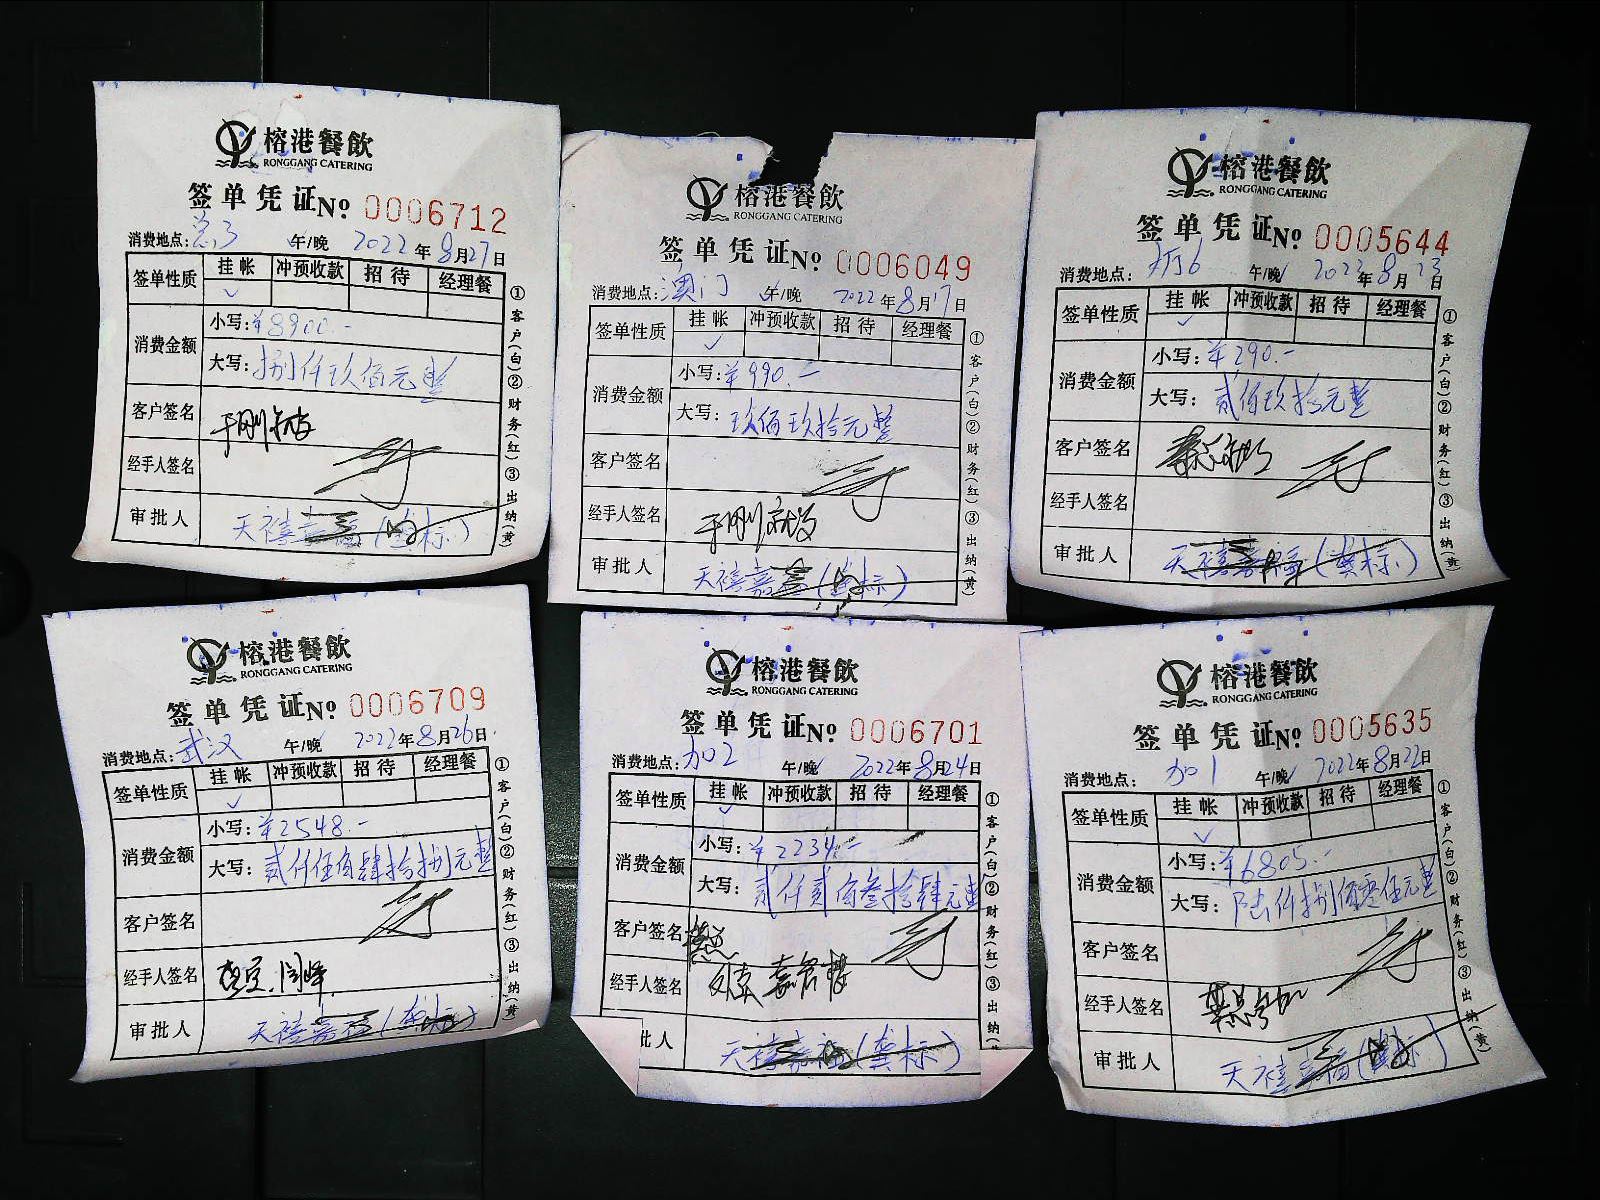 榕港餐飲
RONGGANG CATERING
签单凭证 No 0006712
消费地点: 午/晚 2022年8月27日
签单性质 挂帐 冲预收款 招待 经理餐
✓
消费金额 小写:¥8900.-
大写:捌仟玖佰元整
客户签名
经手人签名
审批人 天禧嘉福(龚标)
①客户(白)②财务(红)③出纳(黄)
榕港餐飲
RONGGANG CATERING
签单凭证 No 0006049
消费地点:澳门 午/晚 2022年8月17日
签单性质 挂帐 冲预收款 招待 经理餐
✓
消费金额 小写:¥990.-
大写:玖佰玖拾元整
客户签名
经手人签名
审批人 天禧嘉福(龚标)
①客户(白)②财务(红)③出纳(黄)
榕港餐飲
RONGGANG CATERING
签单凭证 No 0005644
消费地点: 午/晚 2022年8月23日
签单性质 挂帐 冲预收款 招待 经理餐
✓
消费金额 小写:¥290.-
大写:贰佰玖拾元整
客户签名
经手人签名
审批人 天禧嘉福(龚标)
①客户(白)②财务(红)③出纳(黄)
榕港餐飲
RONGGANG CATERING
签单凭证 No 0006709
消费地点:武汉 午/晚 2022年8月26日
签单性质 挂帐 冲预收款 招待 经理餐
✓
消费金额 小写:¥2548.-
大写:贰仟伍佰肆拾捌元整
客户签名
经手人签名
审批人 天禧嘉福(龚标)
①客户(白)②财务(红)③出纳(黄)
榕港餐飲
RONGGANG CATERING
签单凭证 No 0006701
消费地点:加2 午/晚 2022年8月24日
签单性质 挂帐 冲预收款 招待 经理餐
✓
消费金额 小写:¥2234.-
大写:贰仟贰佰叁拾肆元整
客户签名
经手人签名
批人 天禧嘉福(龚标)
①客户(白)②财务(红)③出纳(黄)
榕港餐飲
RONGGANG CATERING
签单凭证 No 0005635
消费地点:加1 午/晚 2022年8月22日
签单性质 挂帐 冲预收款 招待 经理餐
✓
消费金额 小写:¥6805.-
大写:陆仟捌佰零伍元整
客户签名
经手人签名
审批人 天禧嘉福(龚标)
①客户(白)②财务(红)③出纳(黄)